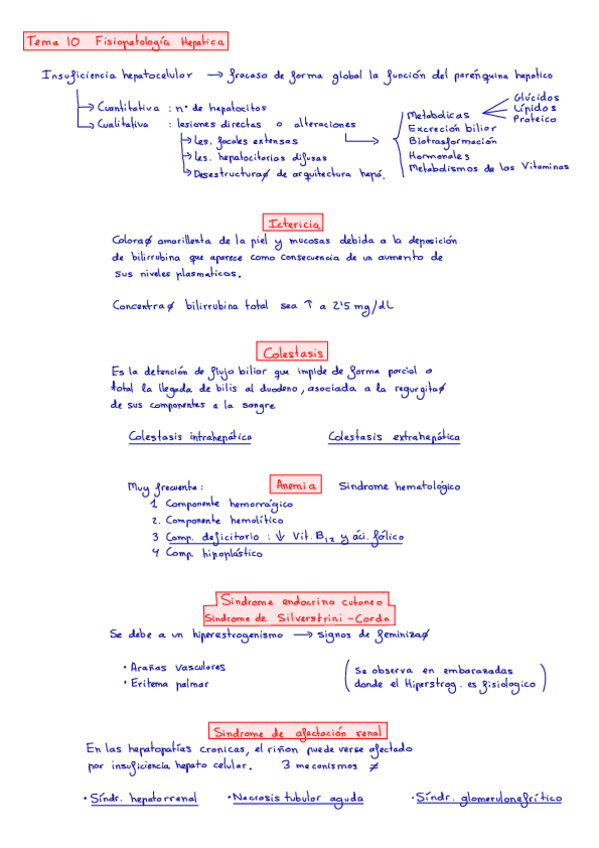 Tema 10 Fisiopatología Hepatica
Insuficiencia hepatocelular → fracaso de forma global la función del parénquina hepatico
Cuantitativa : nº de hepatocitos
Cualitativa : lesiones directas o alteraciones
Les. focales extensas
Les. hepatocitarias difusas
Desestructuraø de arquitectura hepá.
Metabolicas
Glúcidos
Lípidos
Proteico
Excreción biliar
Biotrasformación
Hormonales
Metabolismos de las Vitaminas
Ictericia
Coloraø amarillenta de la piel y mucosas debida a la deposición
de bilirrubina que aparece como consecuencia de un aumento de
sus niveles plasmaticos.
Concentraø bilirrubina total sea ↑ a 2'5 mg/dL
Colestasis
Es la detención de flujo biliar que impide de forma parcial o
total la llegada de bilis al duodeno, asociada a la regurgitaø
de sus componentes a la sangre
Colestasis intrahepática Colestasis extrahepática
Muy frecuente : Anemia Sindrome hematológico
1 Componente hemorrágico
2. Componente hemolítico
3 Comp. deficitario : ↓ Vit. B12 y áci. fólico
4 Comp. hipoplástico
Sindrome endocrino cutaneo
Sindrome de Silverstrini - Corda
Se debe a un hiperestrogenismo → signos de feminizaø
• Arañas vasculares
• Eritema palmar
(se observa en embarazadas
donde el Hiperstrog. es fisiologico)
Sindrome de afectación renal
En las hepatopatías cronicas, el riñon puede verse afectado
por insuficiencia hepato celular. 3 mecanismos ≠
• Síndr. hepatorrenal • Necrosis tubular aguda • Síndr. glomerulonefrítico